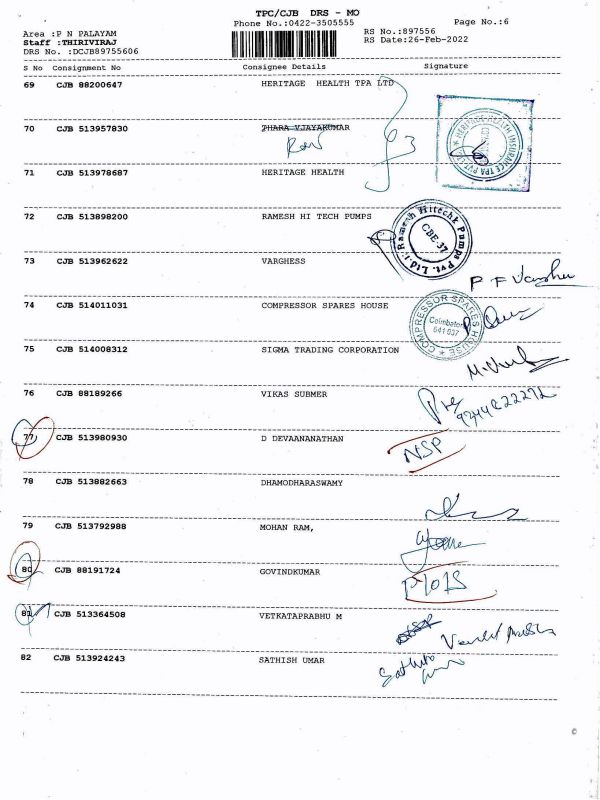 TPC/CJB DRS - MO
Phone No.:0422-3505555 Page No.:6
Area :P N PALAYAM RS No.:897556
Staff :THIRIVIRAJ RS Date:26-Feb-2022
DRS No. :DCJB89755606
S No Consignment No Consignee Details Signature
69 CJB 88200647 HERITAGE HEALTH TPA LTD
70 CJB 513957830 THARA VJAYAKUMAR
71 CJB 513978687 HERITAGE HEALTH
72 CJB 513898200 RAMESH HI TECH PUMPS
Ramesh Hitechk Pumps Pvt. Ltd.
CBE-37
73 CJB 513962622 VARGHESS
74 CJB 514011031 COMPRESSOR SPARES HOUSE
COMPRESSOR SPARES HOUSE
Coimbatore
641 037
75 CJB 514008312 SIGMA TRADING CORPORATION
76 CJB 88189266 VIKAS SUBMER
77 CJB 513980930 D DEVAANANATHAN
NSP
78 CJB 513882663 DHAMODHARASWAMY
79 CJB 513792988 MOHAN RAM,
80 CJB 88191724 GOVINDKUMAR
81 CJB 513364508 VETKATAPRABHU M
82 CJB 513924243 SATHISH UMAR